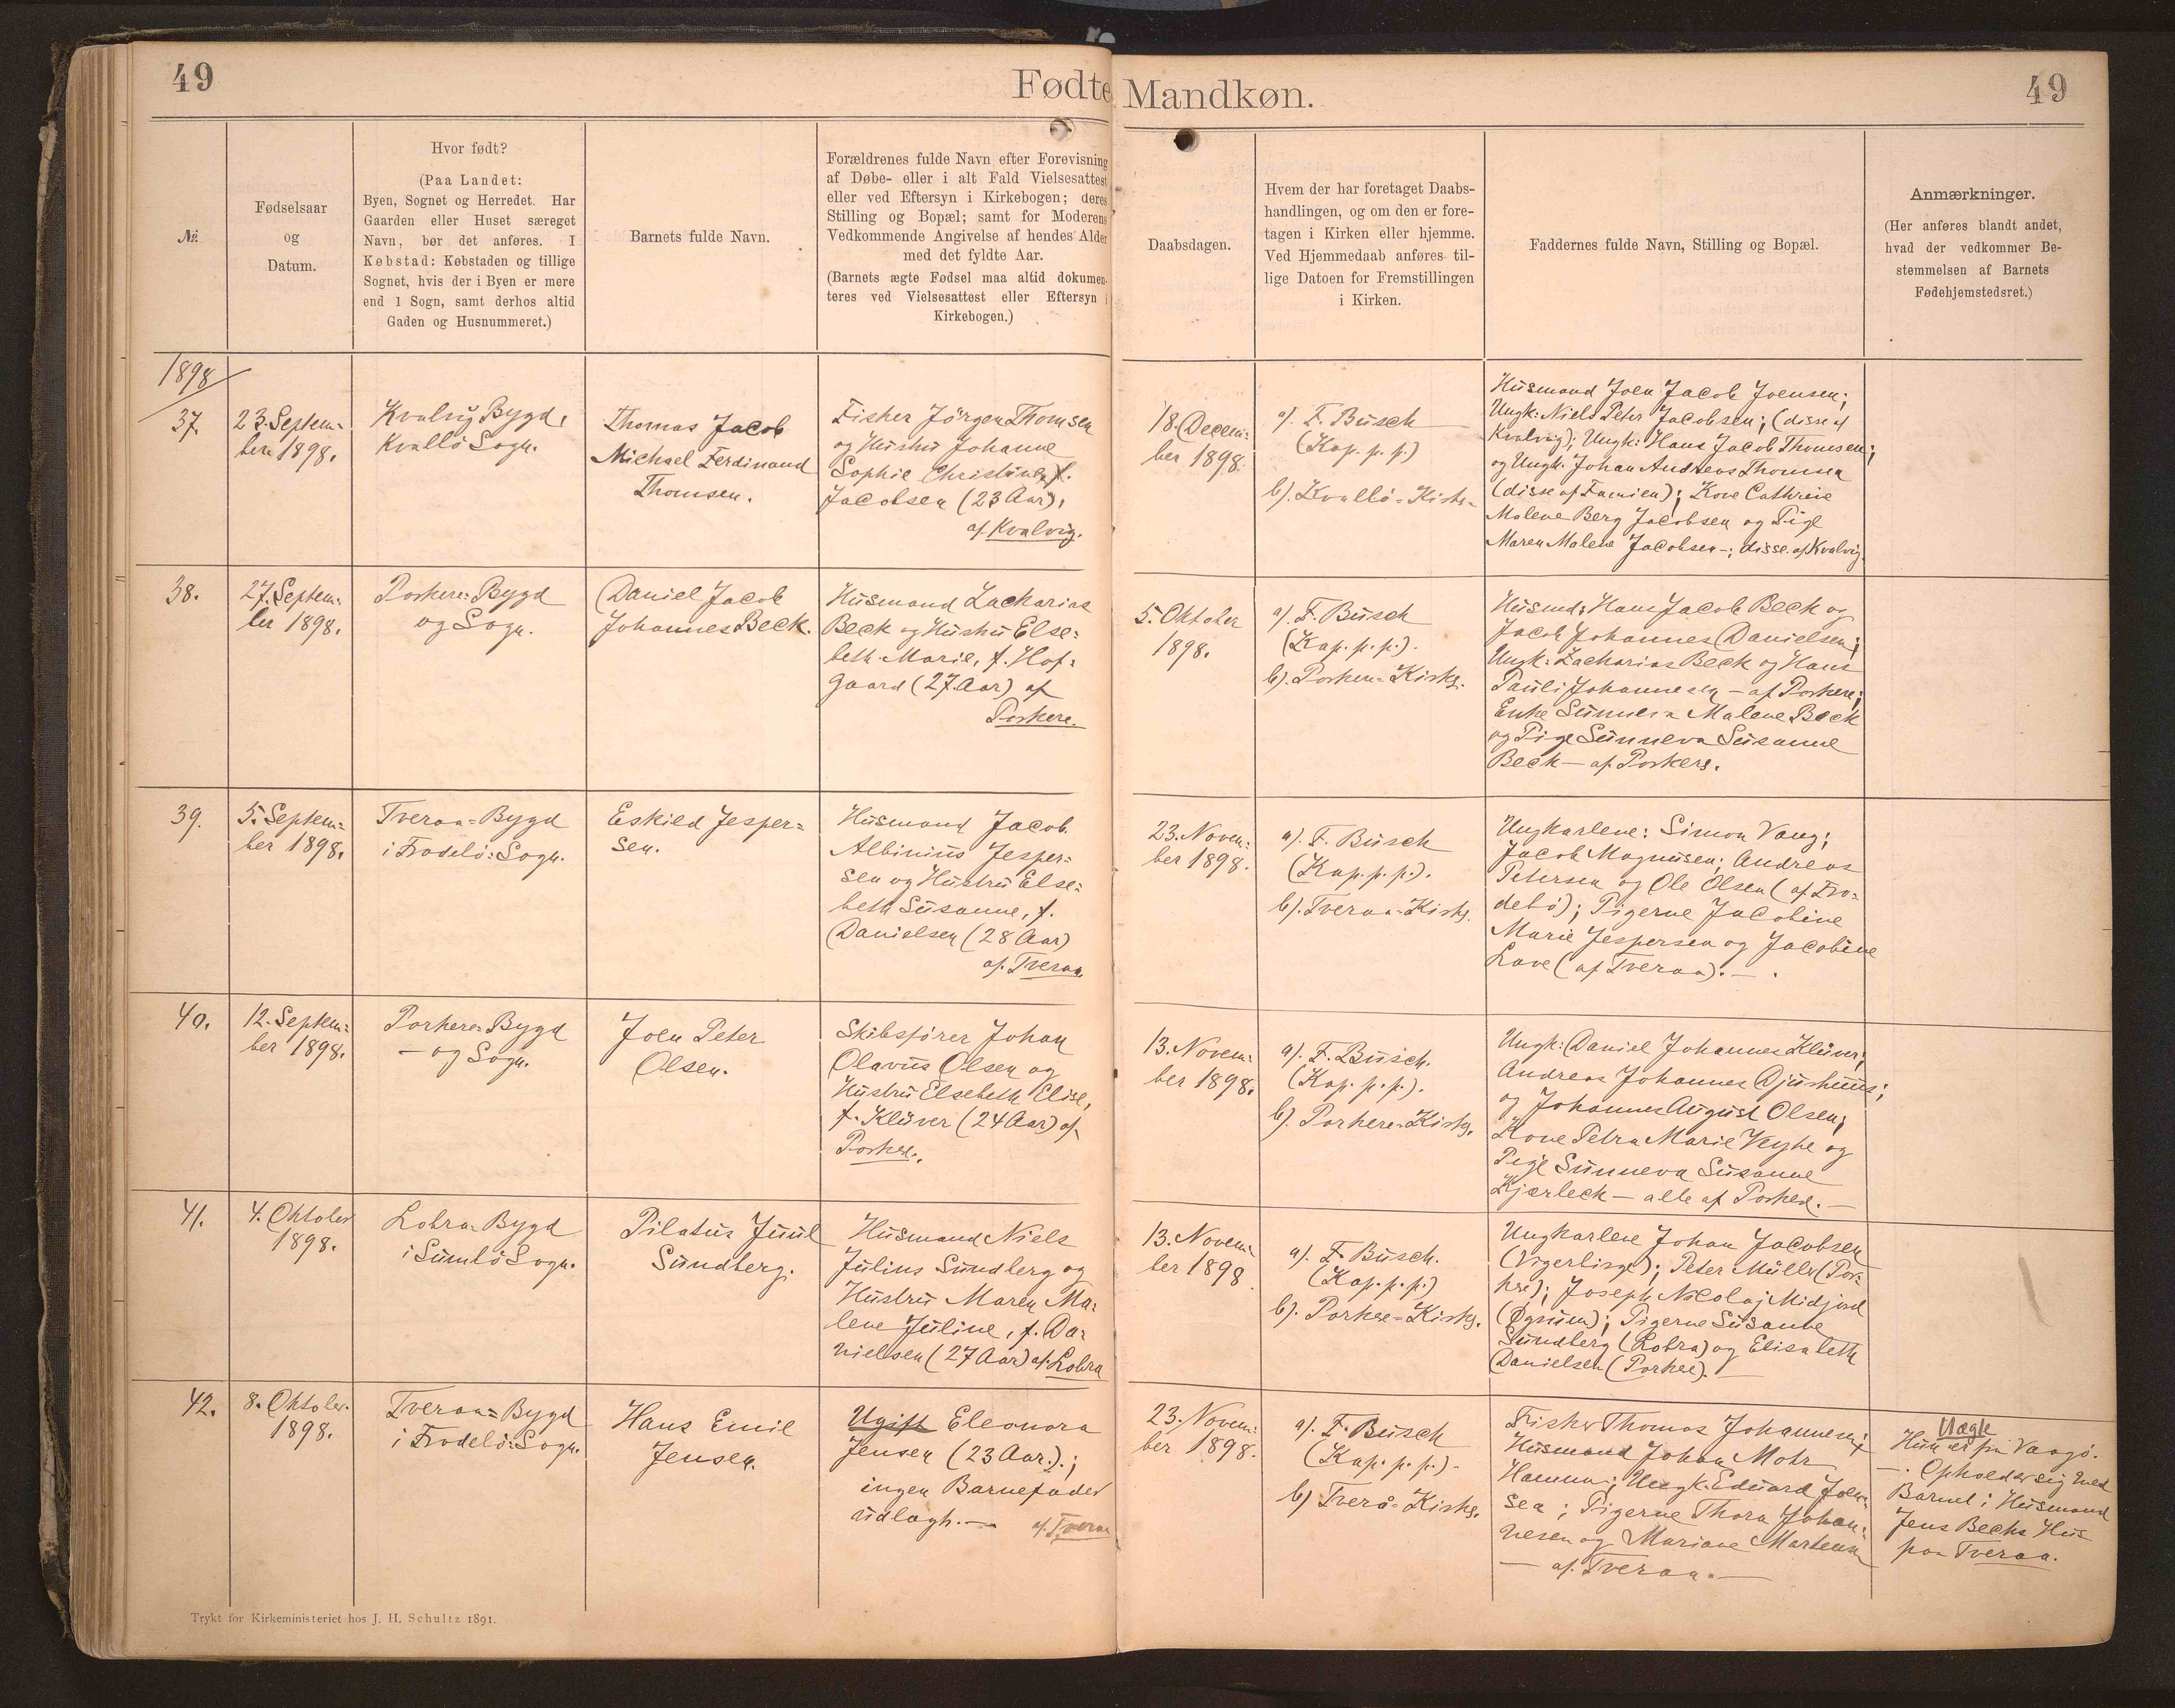 49
Fødte
Mandkøn.
49
№
Fødselsaar
og
Datum.
Hvor født?
(Paa Landet:
Byen, Sognet og Herredet. Har
Gaarden eller Huset særeget
Navn, bør det anføres. I
Købstad: Købstaden og tillige
Sognet, hvis der i Byen er mere
end 1 Sogn, samt derhos altid
Gaden og Husnummeret.)
Barnets fulde Navn.
Forældrenes fulde Navn efter Forevisning
af Døbe- eller i alt Fald Vielsesattest
eller ved Eftersyn i Kirkebogen; deres
Stilling og Bopæl; samt for Moderens
Vedkommende Angivelse af hendes Alder
med det fyldte Aar.
(Barnets ægte Fødsel maa altid dokumen-
teres ved Vielsesattest eller Eftersyn i
Kirkebogen.)
Daabsdagen.
Hvem der har foretaget Daabs-
handlingen, og om den er fore-
tagen i Kirken eller hjemme.
Ved Hjemmedaab anføres til-
lige Datoen for Fremstillingen
i Kirken.
Faddernes fulde Navn, Stilling og Bopæl.
Anmærkninger.
(Her anføres blandt andet,
hvad der vedkommer Be-
stemmelsen af Barnets
Fødehjemstedsret.)
1898
37.
23. Septem-
ber 1898.
Kvalvig Bygd,
Kvalbö Sogn.
Thomas Jacob
Michael Ferdinand
Thomsen.
Fisker Jörgen Thomsen
og Hustru Johanne
Sophie Christine, f.
Jacobsen (23 Aar),
af Kvalvig.
18. Decem-
ber 1898.
a). F. Busch
(Kap. p. p.)
b). Kvalbö-Kirke
Husmand Joen Jacob Joensen;
Ungk: Niels Peter Jacobsen; (disse af
Kvalvig); Ungk: Hans Jacob Thomsen;
og Ungk. Johan Andreas Thomsen
(disse af Famien); Kone Cathrine
Malene Berg Jacobsen og Pige
Maren Malene Jacobsen -; disse af Kvalvig.
38.
27. Septem-
ber 1898.
Porkere-Bygd
og Sogn.
Daniel Jacob
Johannes Beck.
Husmand Zacharias
Beck og Hustru Else-
beth Marie, f. Hof-
gaard (27 Aar) af
Porkere.
5. Oktober
1898.
a). F. Busch
(Kap. p. p.).
b). Porkere-Kirke.
Husmd: Hans Jacob Beck og
Jacob Johannes Danielsen;
Ungk: Zacharias Beck og Hans
Pauli Johannesen - af Porkere;
Enke Sunneva Malene Beck
og Pige Sunneva Susanne
Beck - af Porkere.
39.
5. Septem-
ber 1898.
Tveraa-Bygd
i Frodebö-Sogn.
Eskild Jesper-
sen.
Husmand Jacob
Albinius Jesper-
sen og Hustru Else-
beth Susanne, f.
Danielsen (28 Aar)
af Tveraa
23. Novem-
ber 1898.
a). F. Busch
(Kap. p. p.).
b). Tveraa-Kirke.
Ungkarlene: Simon Vang;
Jacob Magnusen; Andreas
Petersen og Ole Olsen (af Fro-
debö); Pigerne Jacobine
Marie Jespersen og Jacobine
Lave (af Tveraa). -
40.
12. Septem-
ber 1898.
Porkere-Bygd
- og Sogn.
Joen Peter
Olsen.
Skibsförer Johan
Olavus Olsen og
Hustru Elsebeth Elise,
f. Klüver (24 Aar) af
Porkere.
13. Novem-
ber 1898.
a). F. Busch.
(Kap. p. p.).
b). Porkere-Kirke.
Ungk: Daniel Johannes Klüver;
Andreas Johannes Djurhuus;
og Johannes August Olsen;
Kone Petra Marie Veyhe og
Pige Sunneva Susanne
Kjærbeck - alle af Porkere. -
41.
4. Oktober
1898.
Lobra-Bygd
i Sumbö Sogn.
Pilatus Juul
Sundberg.
Husmand Niels
Julius Sundberg og
Hustru Maren Ma-
lene Juline, f. Da-
nielsen (27 Aar) af Lobra
13. Novem-
ber 1898.
a). F. Busch.
(Kap. p. p.)
b). Porkere-Kirke.
Ungkarlene Johan Jacobsen
(Vigerlisge); Peter Müller (Por-
kere); Joseph Nicolaj Midjord
(Øgnum); Pigerne Susanne
Sundberg (Lobra) og Elisabeth
Danielsen (Porkere). -
42.
8. Oktober
1898.
Tveraa-Bygd
i Frodebö-Sogn.
Hans Emil
Jensen.
Ugift Eleonora
Jensen (23 Aar).;
ingen Barnefader
udlagh. -
af Tveraa
23. Novem-
ber 1898.
a). F. Busch
(Kap. p. p.).
b) Tverå-Kirke.
Fisker Thomas Johannesen;
Husmand Johan Mohr
Hamma; Ungk. Eduard Joen-
sen; Pigerne Thora Johan-
nesen og Mariane Mortensen
- af Tveraa. -
Uægte
Hun er fra Vaagö.
-. Opholder sig med
Barnet i Husmand
Jens Becks Hus
paa Tveraa.
Trykt for Kirkeministeriet hos J. H. Schultz 1891.